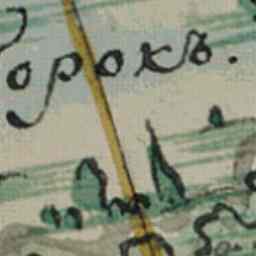 орокъ.